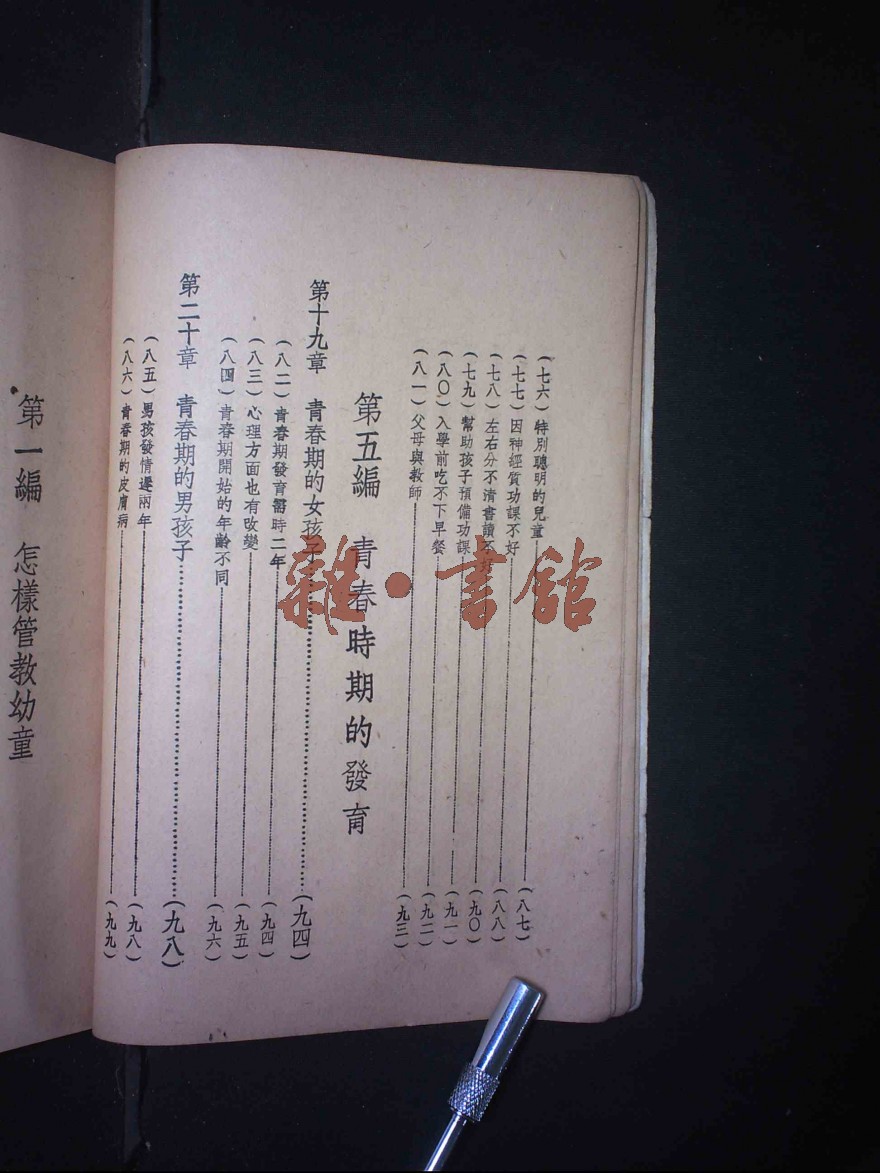 (七六)特別聰明的兒童……(八七)
(七七)因神經質功課不好……(八八)
(七八)左右分不清書讀不……(九〇)
(七九)幫助孩子預備功課……(九一)
(八〇)入學前吃不下早餐……(九二)
(八一)父母與教師……(九三)
第五編 青春時期的發育
第十九章 青春期的女孩子……(九四)
(八二)青春期發育需時二年……(九四)
(八三)心理方面也有改變……(九五)
(八四)青春期開始的年齡不同……(九六)
第二十章 青春期的男孩子……(九八)
(八五)男孩發情遲兩年……(九八)
(八六)青春期的皮膚病……(九九)
第一編 怎樣管教幼童
雜·書館